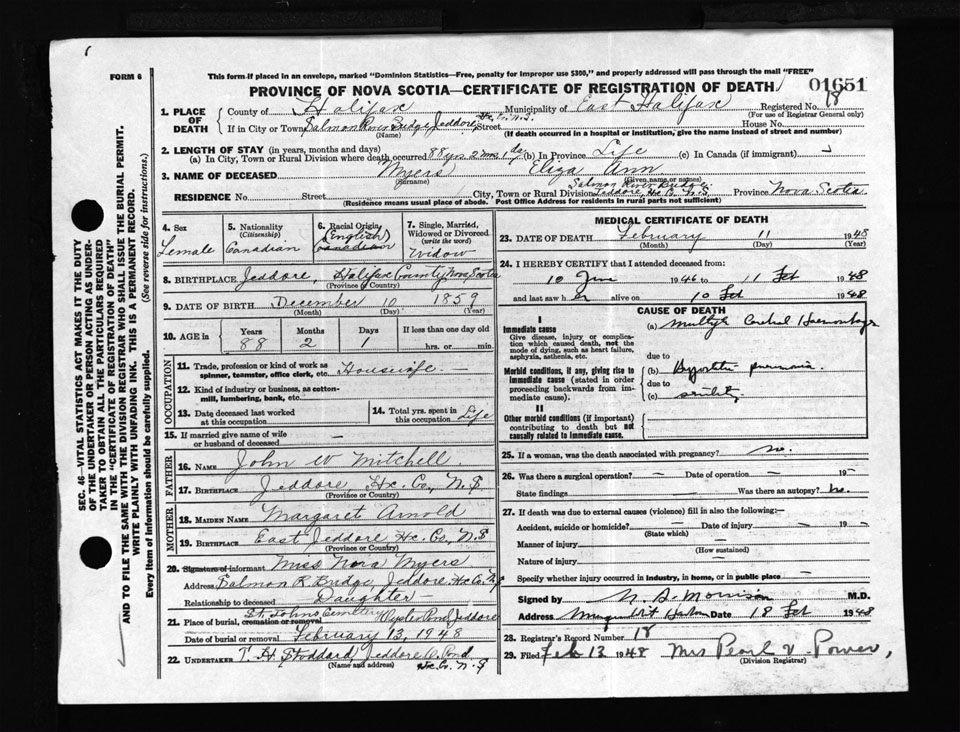 FORM 6
This form if placed in an envelope, marked "Dominion Statistics—Free, penalty for improper use $300," and properly addressed will pass through the mail "FREE"
PROVINCE OF NOVA SCOTIA—CERTIFICATE OF REGISTRATION OF DEATH
01651
1. PLACE OF DEATH
County of Halifax Municipality of East Halifax Registered No. 18
(For use of Registrar General only)
If in City or Town Salmon River Bridge, Jeddore, Hx. Co. N.S. Street House No.
(Name) (If death occurred in a hospital or institution, give the name instead of street and number)
2. LENGTH OF STAY (in years, months and days)
(a) In City, Town or Rural Division where death occurred 88 yrs 2 mos 1 day (b) In Province Life (c) In Canada (if immigrant)
3. NAME OF DECEASED Myers Eliza Ann
(Surname) (Given name or names)
RESIDENCE No. Street City, Town or Rural Division Salmon River Bridge Jeddore, Hx. Co. N.S. Province Nova Scotia
(Residence means usual place of abode. Post Office Address for residents in rural parts not sufficient)
4. Sex Female
5. Nationality (Citizenship) Canadian
6. Racial Origin (English) Canadian
7. Single, Married, Widowed or Divorced (write the word) Widow
8. BIRTHPLACE Jeddore, Halifax County, Nova Scotia
(Province or Country)
9. DATE OF BIRTH December 10 1859
(Month) (Day) (Year)
10. AGE in Years Months Days If less than one day old
88 2 1 hrs. or min.
OCCUPATION
11. Trade, profession or kind of work as spinner, teamster, office clerk, etc. Housewife
12. Kind of industry or business, as cotton-mill, lumbering, bank, etc.
13. Date deceased last worked at this occupation
14. Total yrs. spent in this occupation Life
15. If married give name of wife or husband of deceased —
FATHER
16. NAME John W Mitchell
17. BIRTHPLACE Jeddore, Hx. Co., N.S
(Province or Country)
MOTHER
18. MAIDEN NAME Margaret Arnold
19. BIRTHPLACE East Jeddore Hx. Co., N.S
(Province or Country)
20. Signature of informant Miss Nora Myers
Address Salmon R. Bridge, Jeddore, Hx. Co. N.S
Relationship to deceased Daughter
21. Place of burial, cremation or removal St. Johns Cemetery Oyster Pond, Jeddore
Date of burial or removal February 13, 1948
22. UNDERTAKER T. H. Stoddard, Jeddore O. Pond
(Name and address) Hx. Co. N.S
MEDICAL CERTIFICATE OF DEATH
23. DATE OF DEATH February 11 1948
(Month) (Day) (Year)
24. I HEREBY CERTIFY that I attended deceased from:
10 1946 to 11 Feb 1948
and last saw her alive on 10 Feb 1948
CAUSE OF DEATH
I
Immediate cause
Give disease, injury or complication which caused death, not the mode of dying, such as heart failure, asphyxia, asthenia, etc.
(a) Multiple Cerebral Haemorrhage
due to
Morbid conditions, if any, giving rise to immediate cause (stated in order proceeding backwards from immediate cause).
(b) Hypostatic pneumonia
due to
(c) senility
II
Other morbid conditions (if important) contributing to death but not causally related to immediate cause.
25. If a woman, was the death associated with pregnancy? no.
26. Was there a surgical operation? — Date of operation — 19 —
State findings Was there an autopsy? no.
27. If death was due to external causes (violence) fill in also the following:—
Accident, suicide or homicide? — Date of injury — 19 —
(State which)
Manner of injury —
(How sustained)
Nature of injury —
Specify whether injury occurred in industry, in home, or in public place —
Signed by N. A. Morrison M.D.
Address Musquodoboit Harbour Date 18 Feb 1948
28. Registrar's Record Number 18
29. Filed Feb 13 1948 Mrs Pearl V. Power,
(Division Registrar)
SEC. 46—VITAL STATISTICS ACT MAKES IT THE DUTY
OF THE UNDERTAKER OR PERSON ACTING AS UNDER-
TAKER TO OBTAIN ALL THE PARTICULARS REQUIRED
IN THE "CERTIFICATE OF REGISTRATION OF DEATH"
AND TO FILE THE SAME WITH THE DIVISION REGISTRAR WHO SHALL ISSUE THE BURIAL PERMIT.
WRITE PLAINLY WITH UNFADING INK. THIS IS A PERMANENT RECORD.
Every item of information should be carefully supplied. (See reverse side for instructions.)